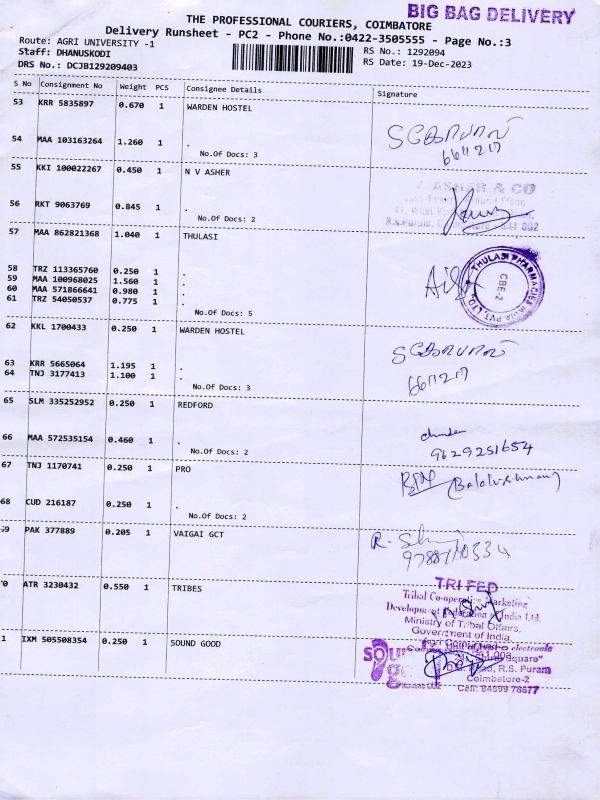 BIG BAG DELIVERY
THE PROFESSIONAL COURIERS, COIMBATORE
Delivery Runsheet - PC2 - Phone No.:0422-3505555 - Page No.:3
Route: AGRI UNIVERSITY -1
Staff: DHANUSKODI
DRS No.: DCJB129209403
RS No.: 1292094
RS Date: 19-Dec-2023
S No Consignment No Weight PCS Consignee Details Signature
53 KRR 5835897 0.670 1 WARDEN HOSTEL
54 MAA 103163264 1.260 1 .
No.Of Docs: 3
55 KKI 100022267 0.450 1 N V ASHER
J. ASHER & CO
56 RKT 9063769 0.845 1 .
No.Of Docs: 2
57 MAA 862821368 1.040 1 THULASI
THULASI PHARMACIES INDIA PVT. LTD.
CBE-2
58 TRZ 113365760 0.250 1 .
59 MAA 100968025 1.560 1 .
60 MAA 571866641 0.980 1 .
61 TRZ 54050537 0.775 1 .
No.Of Docs: 5
62 KKL 1700433 0.250 1 WARDEN HOSTEL
63 KRR 5665064 1.195 1 .
64 TNJ 3177413 1.100 1 .
No.Of Docs: 3
65 SLM 335252952 0.250 1 REDFORD
66 MAA 572535154 0.460 1 .
No.Of Docs: 2
9629251654
67 TNJ 1170741 0.250 1 PRO
68 CUD 216187 0.250 1 .
No.Of Docs: 2
59 PAK 377889 0.205 1 VAIGAI GCT
0 ATR 3230432 0.550 1 TRIBES
TRIFED
Tribal Co-operative Marketing
Development Federation of India Ltd.
Ministry of Tribal Affairs,
Government of India
1 IXM 505508354 0.250 1 SOUND GOOD
Square"
Road, R.S. Puram
Coimbatore-2
Cell: 84899 76677